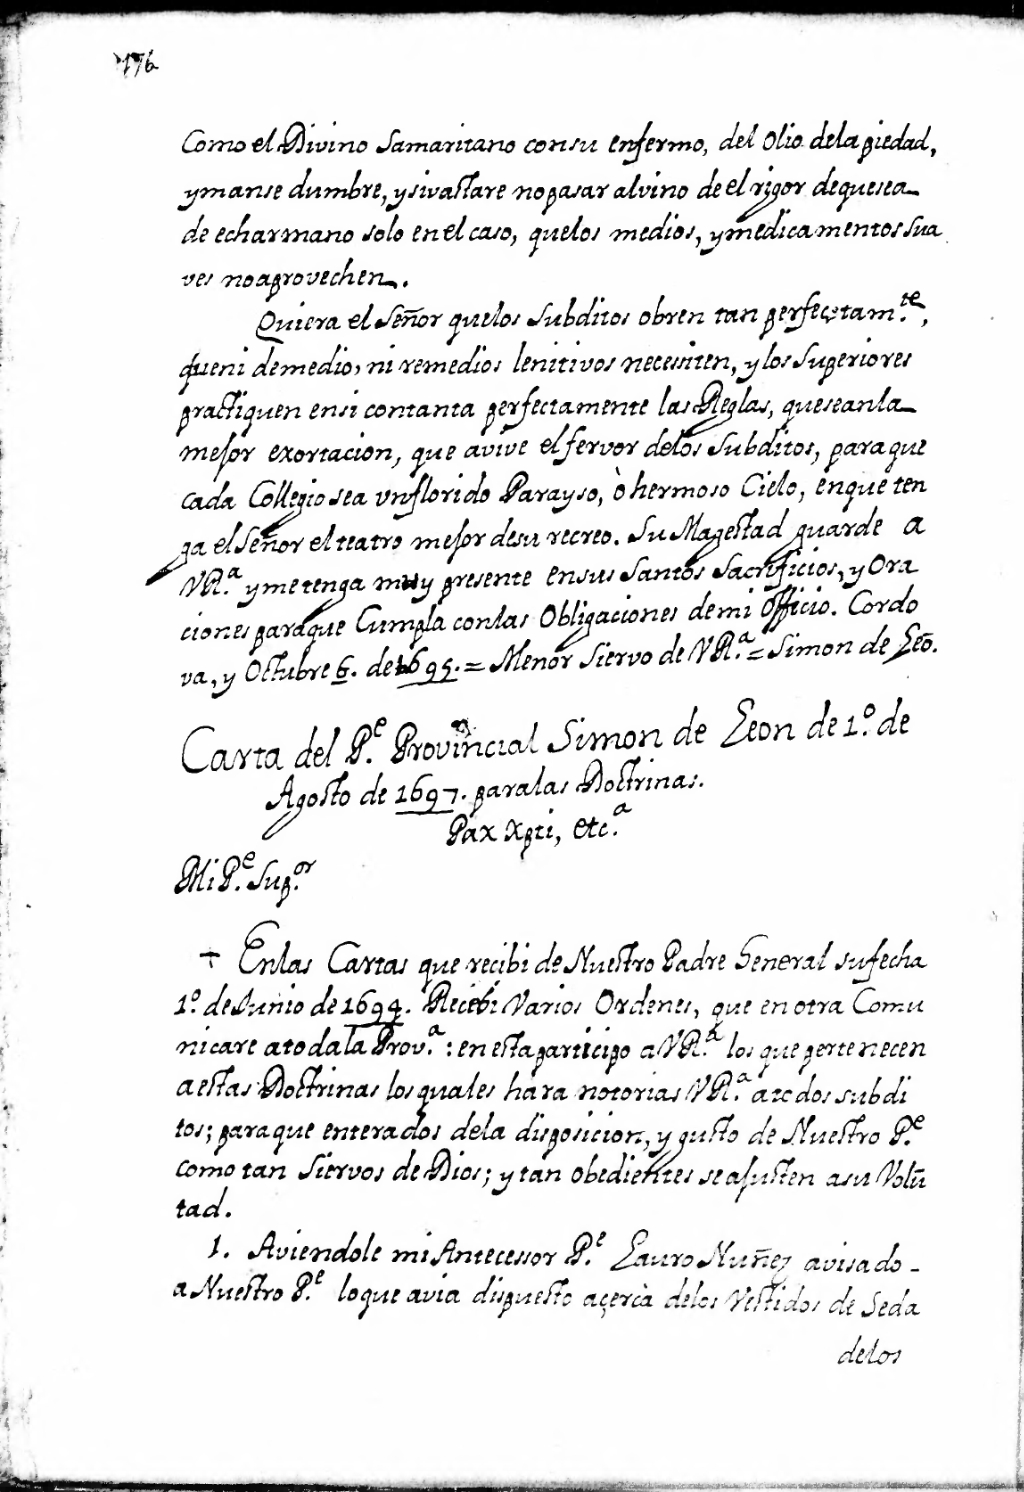 176
Como el Divino Samaritano consu enfermo, del Olio dela piedad,
ymanse dumbre, ysivastare nopasar alvino de el rigor dequesea
de echarmano solo en el caso, quelos medios, ymedicamentos sua
ves noaprovechen.
Quiera el Señor quelos Subditos obren tan perfeçtam.te,
queni demedio, ni remedios lenitivos necessiten, y los Superiores
practiquen ensi contanta perfectamente las Reglas, queseanla
mejor exortacion, que avive el fervor delos Subditos, para que
cada Collegio sea vnflorido Parayso, ò hermoso Cielo, enque ten
ga el Señor el teatro mejor desu recreo. Su Magestad guarde a
VR.a y me tenga muy presente ensus Santos Sacrificios, y Ora
ciones paraque Cumpla conlas Obligaciones demi Officio. Cordo
va, y Octubre 6. de 1695. = Menor Siervo de VR.a = Simon de Leō.
Carta del P.e Provincial Simon de Leon de 1.o de
Agosto de 1697. paralas Doctrinas.
Pax Xpti, etc.a
Mi P.e Sup.or
+ Enlas Cartas que recibi de Nuestro Padre General sufecha
1.o de Junio de 1694. Recebi Varios Ordenes, que en otra Comu
nicare atodala Prov.a: en esta participo a VR.a los que pertenecen
aestas Doctrinas los quales hara notorias VR.a atodos subdi
tos; paraque enterados dela disposicion, y gusto de Nuestro P.e
como tan Siervos de Dios; y tan obedientes se ajusten asu Volū
tad.
1. Aviendole mi Antecessor P.e Lauro Nuñez avisado -
a Nuestro P.e loque avia dispuesto açercà delos Vestidos de Seda
delos